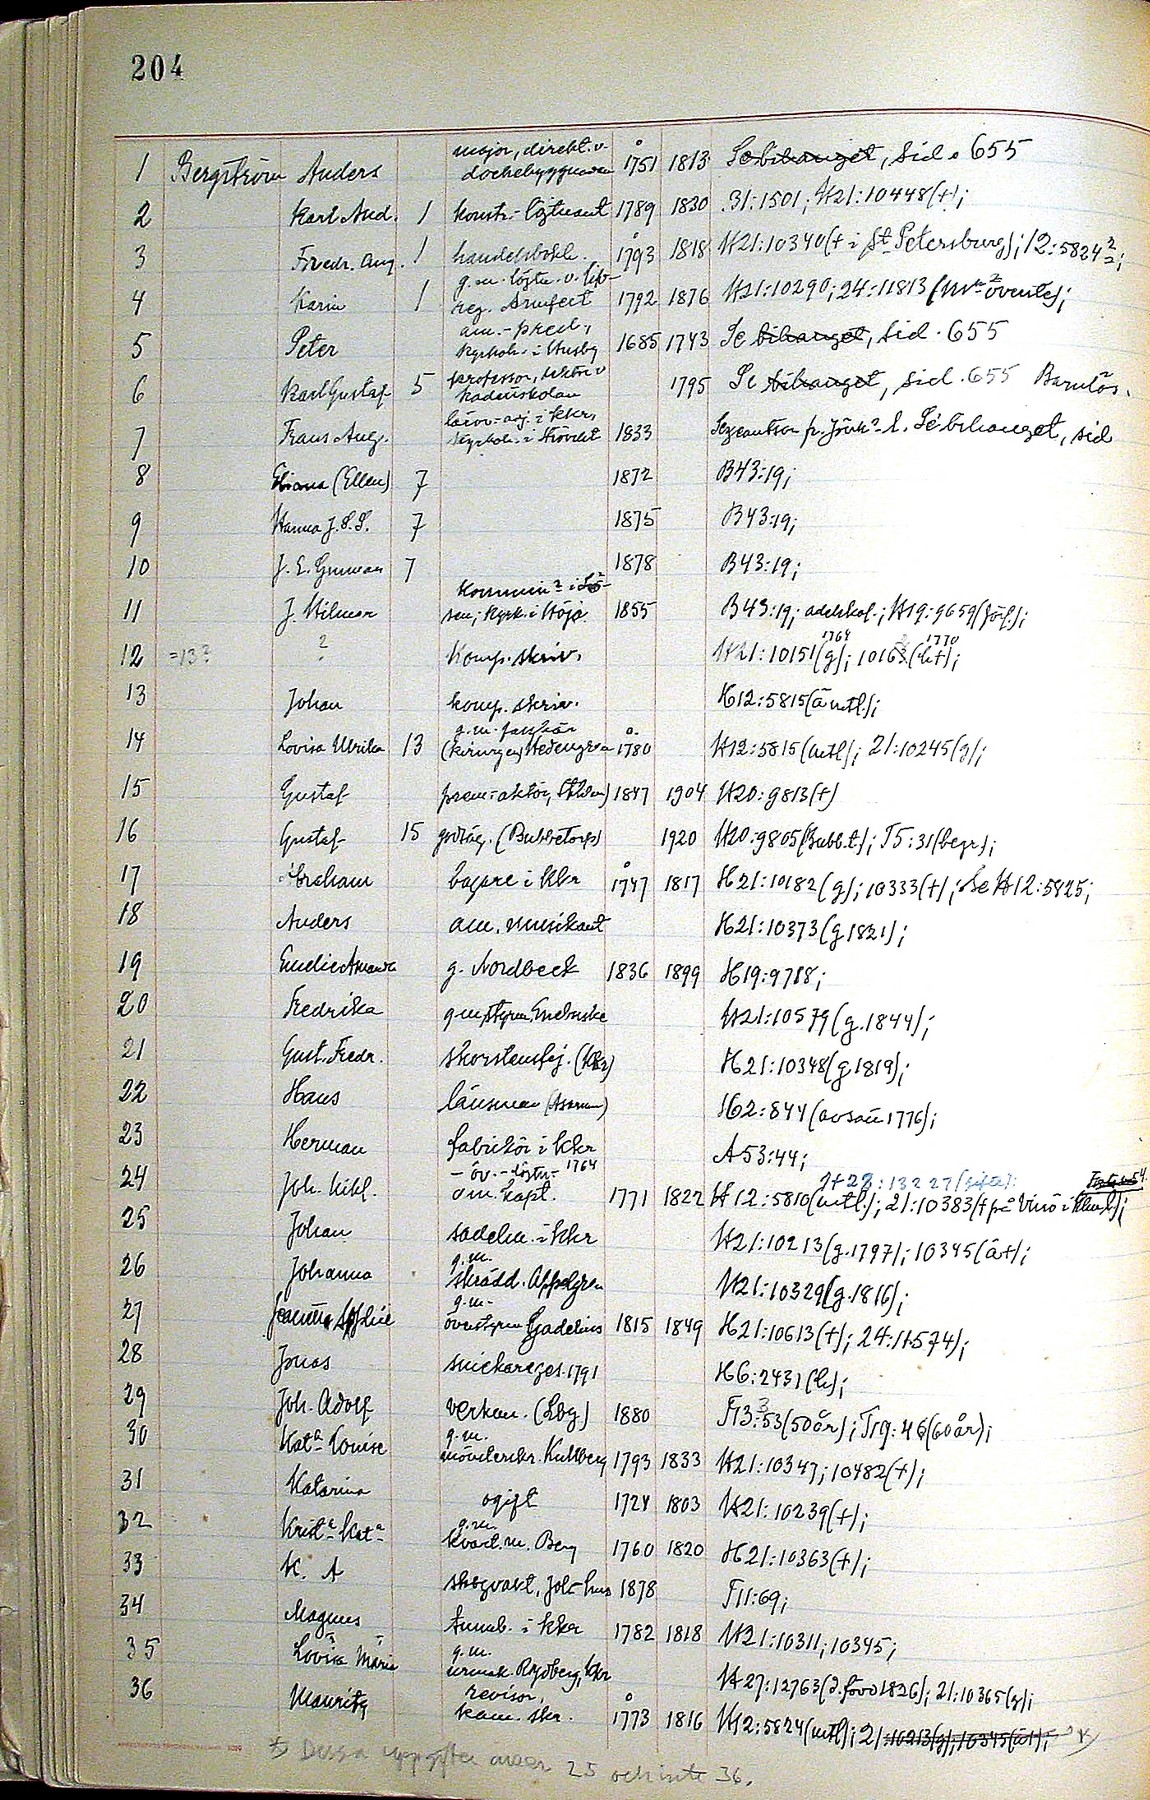 204
1 Bergström Anders major, direkt. v. dockebyggnaden 1751 1813 Se bihanget, sid. 655
2 Karl And. 1 konstr.-löjtnant 1789 1830 31:1501; H21:10448(+);
3 Fredr. Aug. 1 handelsbokh. 1793 1818 H21:10340(+ i St Petersburg); 12:5824
4 Karin 1 g.m. löjtn. v. reg. Arnfert 1792 1876 H21:10290; 24:11813
5 Peter am.-pred., kyrkoh. i Husby 1685 1743 Se bihanget, sid. 655
6 Karl Gustaf 5 professor, kadettskolan 1795 Se bihanget, sid. 655 Barnlös.
7 Frans Aug. lärov.-adj. i kkr, kyrkoh. i 1833 Se bihanget, sid
8 (Ellen) 7 1872 B43:19;
9 Hanna J. S. S. 7 1875 B43:19;
10 J. E. Gunnar 7 1878 B43:19;
11 J. Hilmer kommin. i kyrk. i Höja 1855 B43:19; adelskal.; H19:9659
12 =13? ? komp. skriv. H21:10151(g); 1764 1016 (h+); 1770
13 Johan komp. skriv. H12:5815(ä mtl.);
14 Lovisa Ulrika 13 g.m. (kirurgen) Hedengren 1780 H12:5815(mtl); 21:10245(g);
15 Gustaf prem.-aktör, 1847 1904 H20:9813(+)
16 Gustaf 15 godsäg. (Bubbetorp) 1920 H20:9805(Bubb.t); T5:31(begr);
17 Abraham bagare i kkr 1747 1817 H21:10182(g); 10333(+); Se H12:5825;
18 Anders am. musikant H21:10373(g 1821);
19 Emelie Amanda g. Nordbeck 1836 1899 H19:9718;
20 Fredrika g.m. styrm. Eneberske H21:10579(g.1844);
21 Gust. Fredr. skorstensfej. (kkr) H21:10348(g 1819);
22 Hans länsman (Asarum) H2:844(avsatt 1776);
23 Herman fabrikör i kkr A53:44;
24 Joh. Nikl. – öv.-löjtn – 1764 am. kapt. 1771 1822 H28:13227 H12:5810(mtl.); 21:10383(+ på Vinö i
25 Johan sadelm. i kkr H21:10213(g.1797); 10345(ä+);
26 Johanna g.m. skrädd. Appelgren H21:10329(g.1816);
27 Jeanna Sophie g.m. överstyrm Gadelius 1815 1849 H21:10613(+); 24:11574);
28 Jonas snickareges. 1791 H6:2431(h);
29 Joh. Adolf verkm. (Lbg) 1880 T13:53(50 år); T19:46(60 år);
30 Kata Louise g.m. mönsterskr. Kullberg 1793 1833 H21:10347; 10482(+);
31 Katarina ogift 1724 1803 H21:10239(+);
32 Krista Kata g.m. kvart.m. Berg 1760 1820 H21:10363(+);
33 K. A skogvakt, 1878 T11:69;
34 Magnus tunnb. i kkr 1782 1818 H21:10311; 10345;
35 Lovisa Maria g.m. urmak. Rydberg, kkr H27:12763(d. född 1826); 21:10365(g);
36 Mauritz revisor, kam. skr. 1773 1816 H12:5824(mtl); 21:10213(g); 10345(ä+);
Dessa uppgifter avser 25 och inte 36.